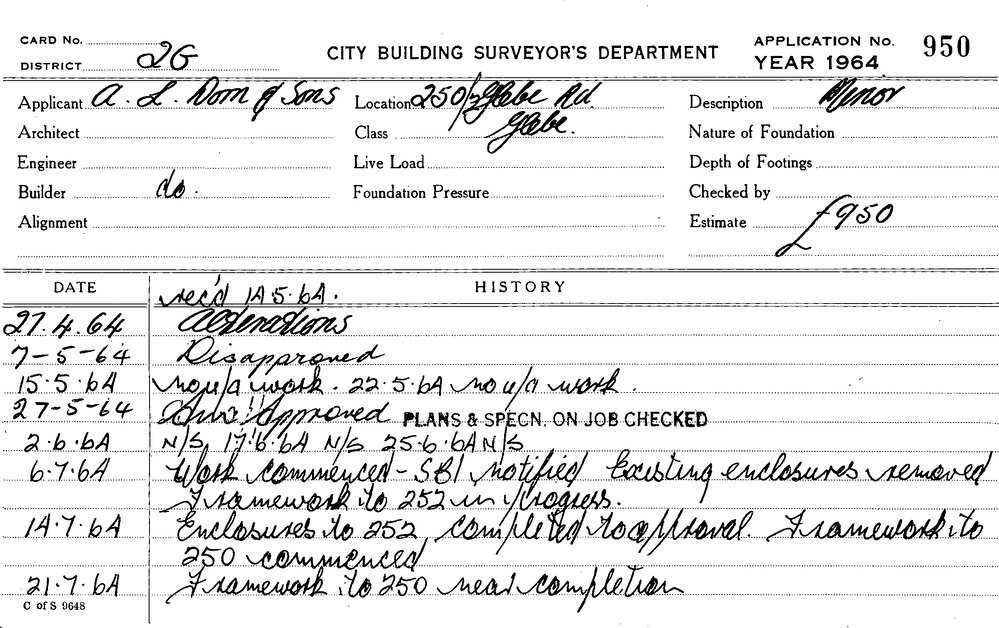 CARD No.
DISTRICT 2G
CITY BUILDING SURVEYOR'S DEPARTMENT
APPLICATION No. 950
YEAR 1964
Applicant A. L. Dorn & Sons Location 250/2 Glebe Rd. Description Minor
Architect Class Glebe. Nature of Foundation
Engineer Live Load Depth of Footings
Builder do. Foundation Pressure Checked by
Alignment Estimate £950
DATE HISTORY
rec'd 14.5.64.
27.4.64 Alterations
7-5-64 Disapproved
15.5.64 no u/a work. 22.5.64 no u/a work.
27-5-64 Approved PLANS & SPECN. ON JOB CHECKED
2.6.64 N/S 17.6.64 N/S 25.6.64 N/S
6.7.64 Work commenced - SBI notified Existing enclosures removed
Framework to 252 in progress.
14.7.64 Enclosures to 252, completed to approval. Framework to
250 commenced
21.7.64 Framework to 250 near completion
C of S 9648